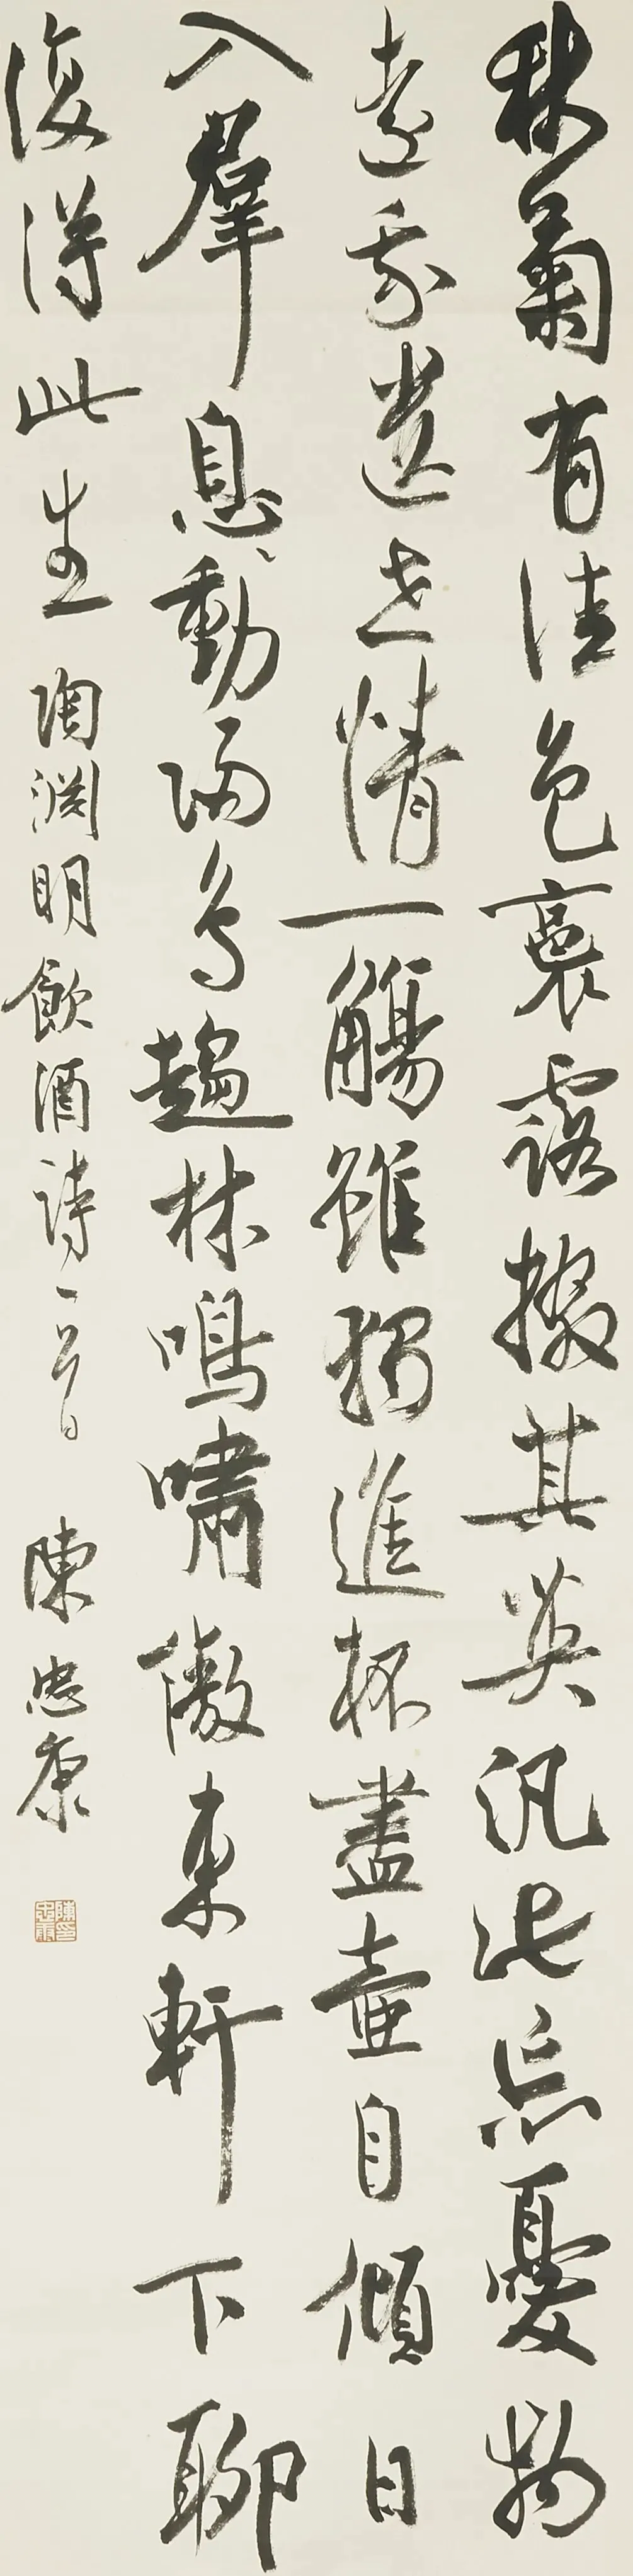 秋菊有佳色裛露掇其英汎此忘憂物
遠我遺世情一觴雖獨進杯盡壺自傾日
入羣息動歸鳥趨林鳴嘯傲東軒下聊
復得此生
陶淵明飲酒詩一首
陳忠康
陳忠康印